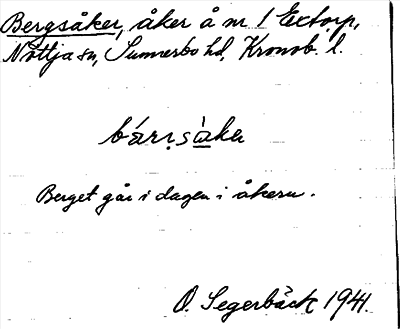 Bergsåker, åker å nr 1 Extorp,
Nöttja sn, Sunnerbo hd, Kronob. l.
Berget går i dagen i åkern.
O. Segerbäck 1941.